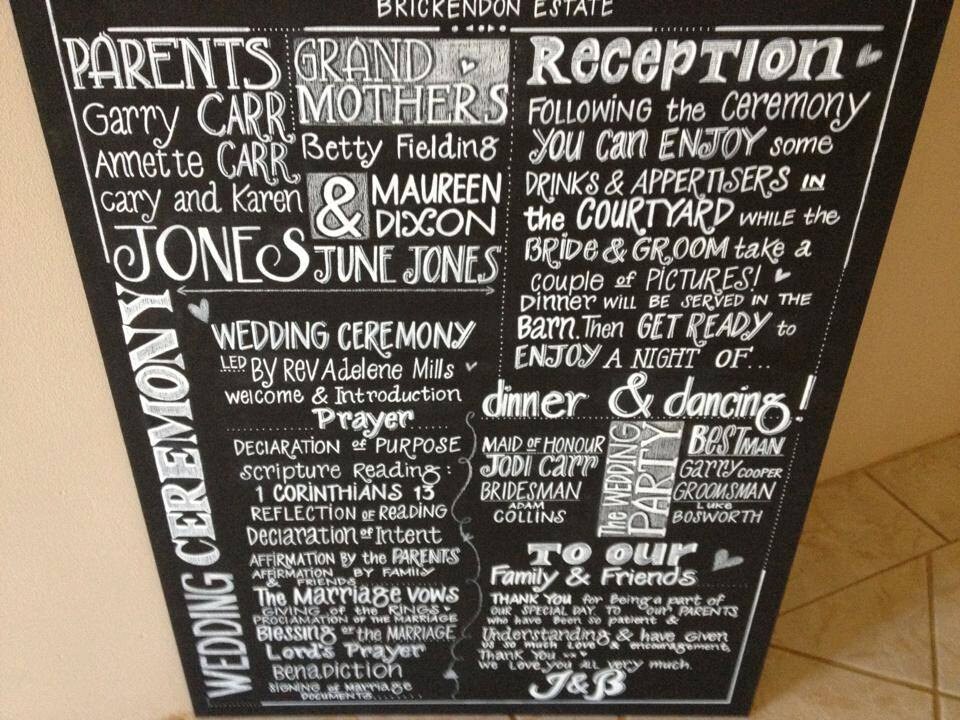 BRICKENDON ESTATE
PARENTS
Garry CARR
Annette CARR
cary and Karen
JONES
GRAND
MOTHERS
Betty Fielding
& MAUREEN
DIXON
JUNE JONES
Reception
FOLLOWING the Ceremony
YOU can ENJOY some
DRINKS & APPERTISERS IN
the COURTYARD WHILE the
BRIDE & GROOM take a
couple of PICTURES!
Dinner WILL BE SERVED IN THE
Barn. Then GET READY to
ENJOY A NIGHT OF...
dinner & dancing!
WEDDING CEREMONY
WEDDING CEREMONY
LED BY REV Adelene Mills
welcome & Introduction
Prayer
DECLARATION of PURPOSE
Scripture Reading:
1 CORINTHIANS 13
REFLECTION OF READING
Declaration of Intent
AFFIRMATION BY the PARENTS
AFFIRMATION BY FAMILY
& FRIENDS
The Marriage VOWS
GIVING of the RINGS
PROCLAMATION OF THE MARRIAGE
Blessing of the MARRIAGE
Lord's Prayer
Benadiction
SIGNING of Marriage
DOCUMENTS...
MAID OF HONOUR
JODI Carr
BRIDESMAN
ADAM
COLLINS
The WEDDING
PARTY
BEST MAN
Garry COOPER
GROOMSMAN
LUKE
BOSWORTH
TO our
Family & Friends
THANK YOU for Being a part of
OUR SPECIAL DAY. TO our PARENTS
who have Been so patient &
Understanding & have Given
us so much Love & encouragement,
Thank You
we Love you ALL very much.
J&B